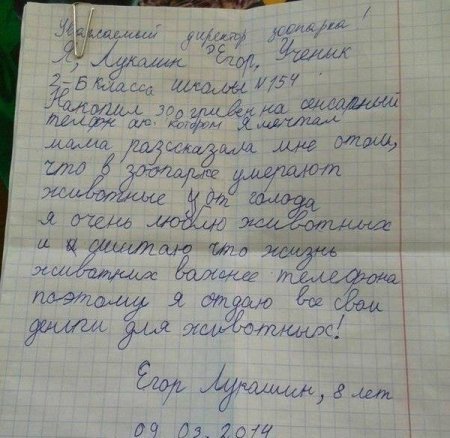 Уважаемый директор зоопарка!
Я, Лукашин Егор, Ученик
2-Б класса школы №154
Накопил 300 гривен на сенсарный
телфн
котором Я мечтал
мама разссказала мне о том,
что в зоопарке умерают
животные от голода
я очень люблю животных
и считаю что жизнь
животних важнее телефона
поэтому я отдаю все свои
деньги для животных!
Егор Лукашин, 8 лет
09 03. 2014